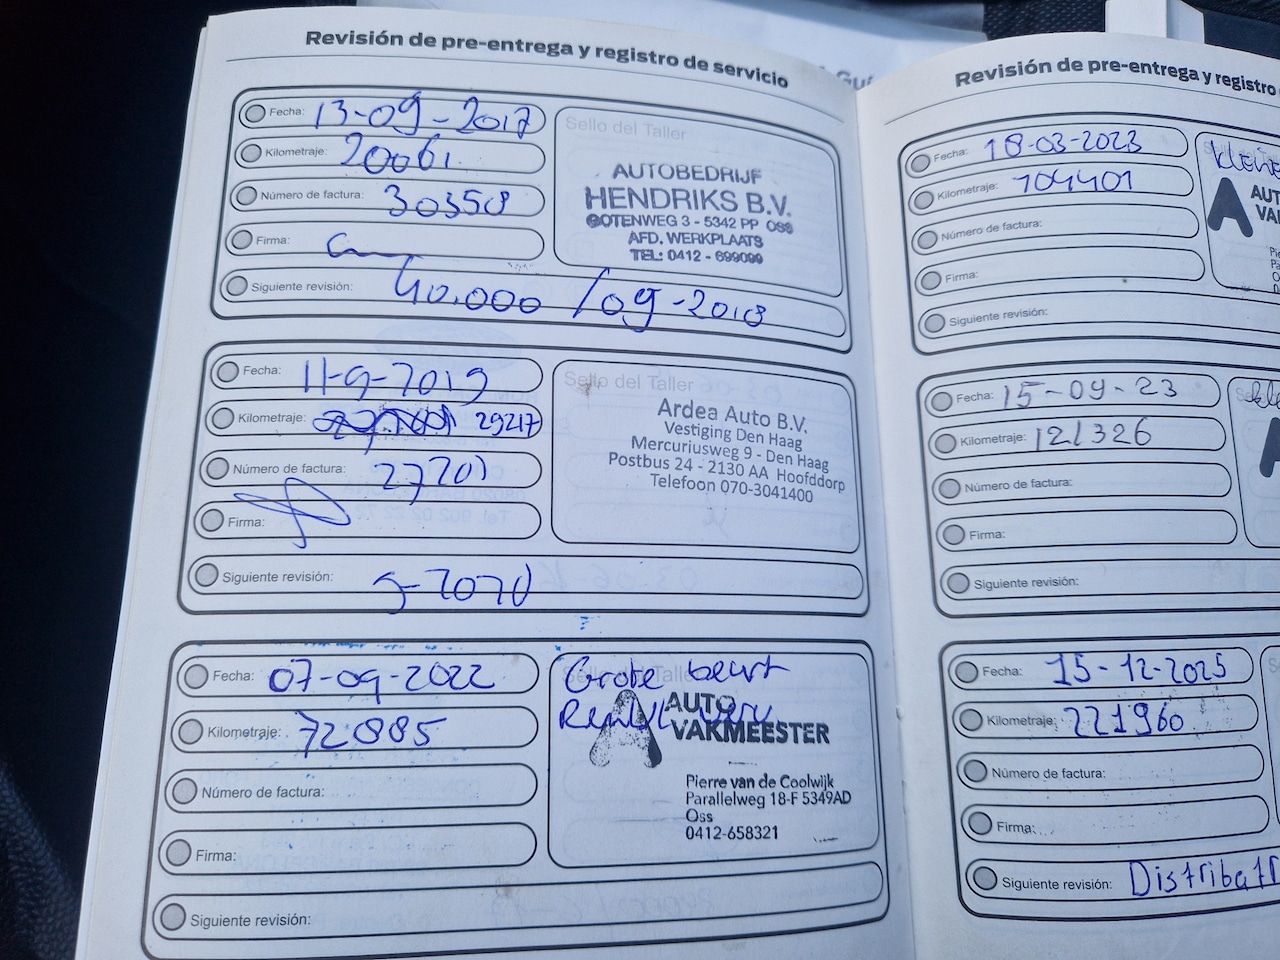 Revisión de pre-entrega y registro de servicio
Fecha: 13-09-2017
Kilometraje: 20061
Número de factura: 30358
Firma:
Siguiente revisión: 40.000 / 09-2018
Sello del Taller
AUTOBEDRIJF
HENDRIKS B.V.
GOTENWEG 3 - 5342 PP OSS
AFD. WERKPLAATS
TEL: 0412 - 699099
Fecha: 11-9-2019
Kilometraje: 29217
Número de factura: 27201
Firma:
Siguiente revisión: 9-2020
Sello del Taller
Ardea Auto B.V.
Vestiging Den Haag
Mercuriusweg 9 - Den Haag
Postbus 24 - 2130 AA Hoofddorp
Telefoon 070-3041400
Fecha: 07-09-2022
Kilometraje: 72885
Número de factura:
Firma:
Siguiente revisión:
Grote beurt
AUTO
VAKMEESTER
Pierre van de Coolwijk
Parallelweg 18-F 5349AD
Oss
0412-658321
Revisión de pre-entrega y registro
Fecha: 18-03-2023
Kilometraje: 104401
Número de factura:
Firma:
Siguiente revisión:
Fecha: 15-09-23
Kilometraje: 121326
Número de factura:
Firma:
Siguiente revisión:
Fecha: 15-12-2025
Kilometraje: 221960
Número de factura:
Firma:
Siguiente revisión: